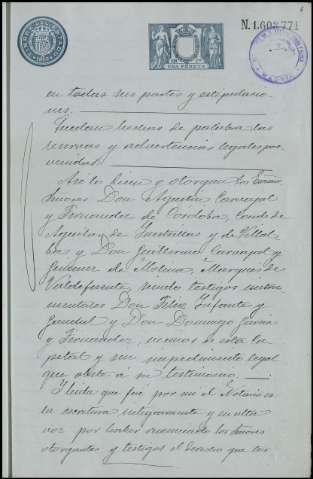 N.1.603.771
UNA PESETA
en todas sus partes y estipulacio-
nes.
Quedan hechas de palabra las
reservas y advertencias legales pre-
venidas.
Así lo dicen y otorgan los
Señores Don Agustin Carvajal
y Fernandez de Cordoba, Conde de
Aguilar de Inestrillas y de Villal-
ba y Don Guillermo Carvajal y
Gutierrez de Molina, Marques de
Valdefuentes, siendo testigos instru-
mentales Don Felix Infante y
y Don Domingo
y Fernandez, vecinos de esta Ca-
pital y sin impedimento legal
que obste á su testimonio.
Y leida que fué por mi el Notario es-
ta escritura integramente y en alta
voz por haber renunciado los señores
otorgantes y testigos el derecho que les